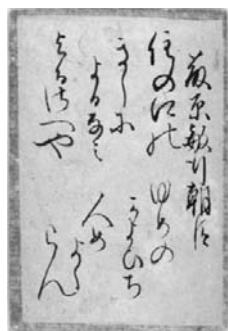 藤原敏行朝臣
住の江の
きしに
よるなみ
よるさへや
ゆめの
かよひち
人め
よく
らん